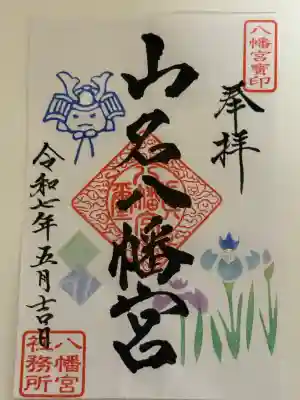 八幡宮寳印
奉拝
山名八幡宮
令和七年五月吉日
八幡宮
社務所